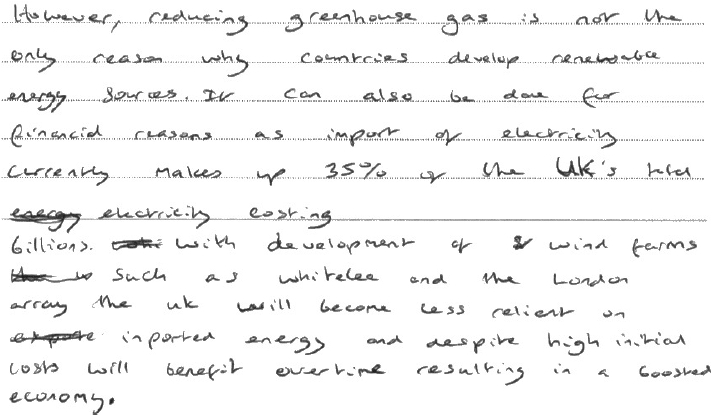 However, reducing greenhouse gas is not the
only reason why countries develop renewable
energy sources. It can also be done for
financial reasons as import of electricity
currently makes up 35% of the UK's total
energy electricity costing
billions. with development of wind farms
such as whitelee and the London
array the uk will become less relient on
inported energy and despite high initial
costs will benefit overtime resulting in a boosted
economy.